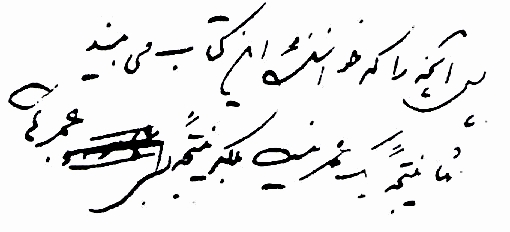 پس آنچه را که خوانندهٔ این کتاب می بیند
نتیجهٔ یک عمر نیست بلکه نتیجهٔ عمرها